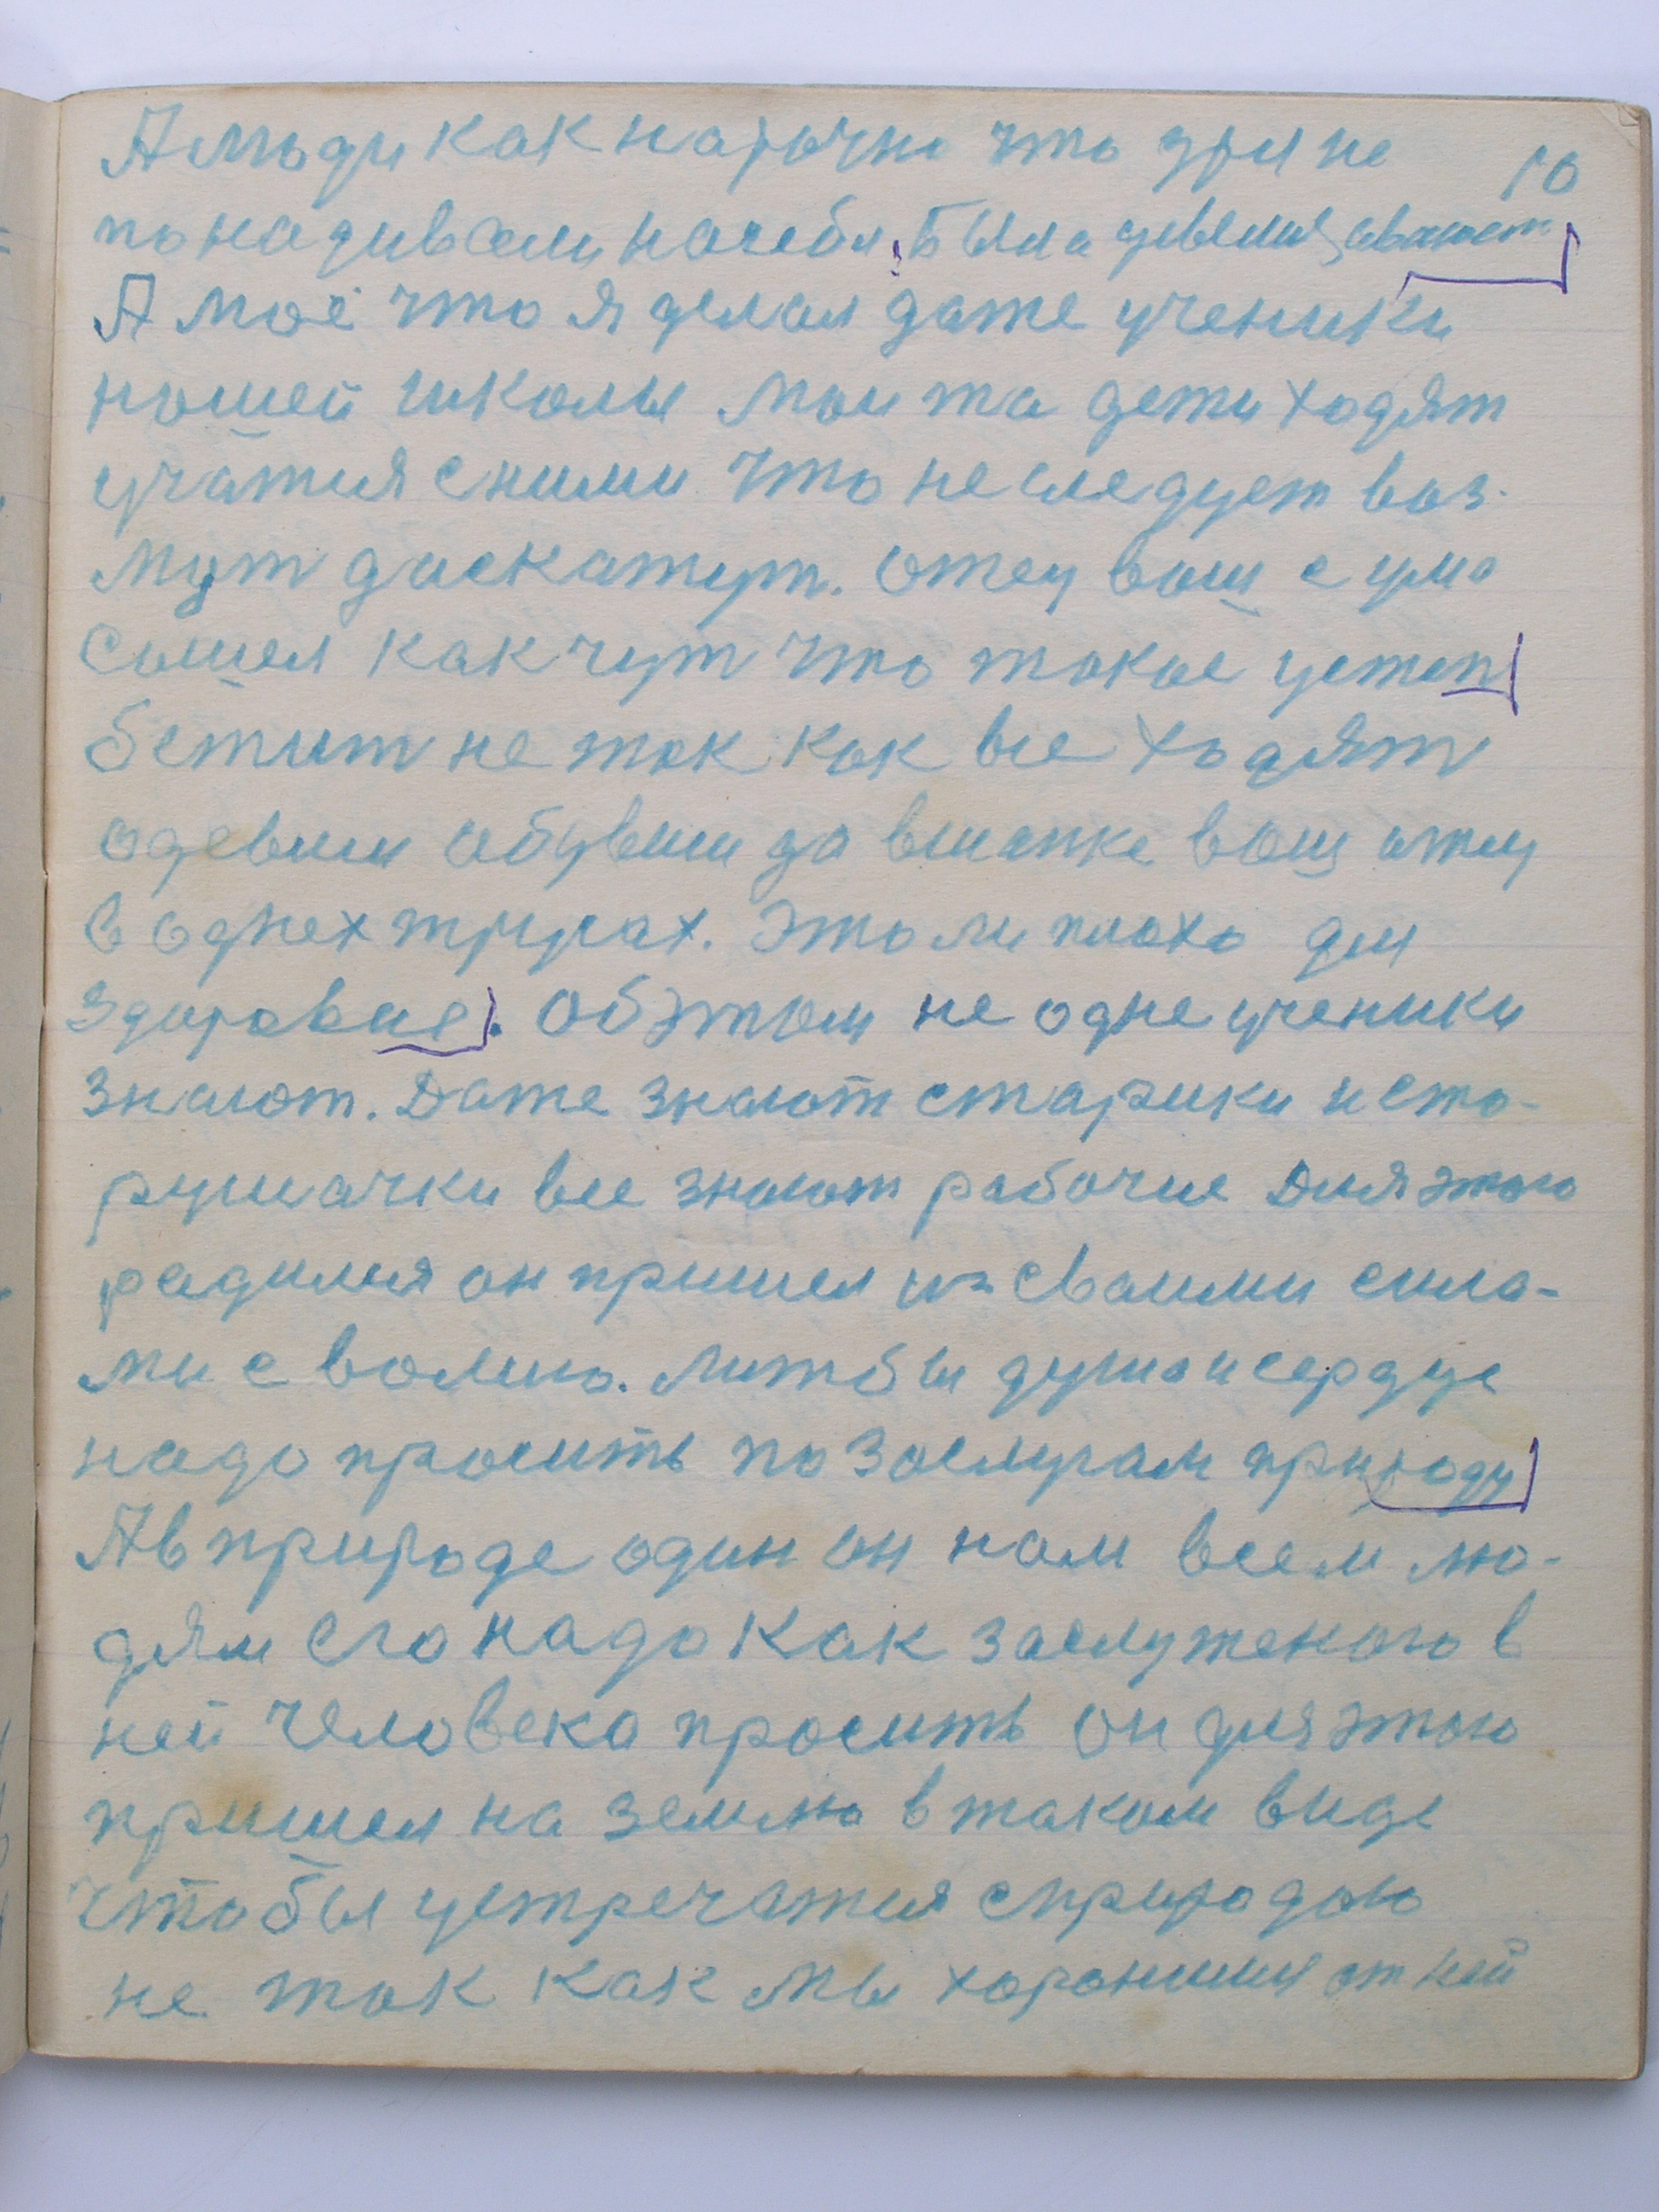 А люди как нарочно что зря не
10
понадивали на себя. Была
А моё что я делал даже ученики
нашей школы мои та дети ходят
учатся с ними что не следует воз-
мут даскажут. Отец ваш с ума
сошел как чут что такое устеп
бежит не так как все ходят
одевши обувши да в шапке ваш отец
в однех трусах. Это ли плохо для
здоровие. Об этом не одне ученики
знают. Даже знают старики и ста-
рушачки все знают рабочие Для этого
радился он пришел из сваими сила-
ми с волию. Лижбы душа и сердце
надо просить по заслугам природу
А в природе один он нам всем лю-
дям его надо как заслуженого в
ней человека просить он для этого
пришел на землю в таком виде
чтобы устречатся с природою
не так как мы хоронимся от ней